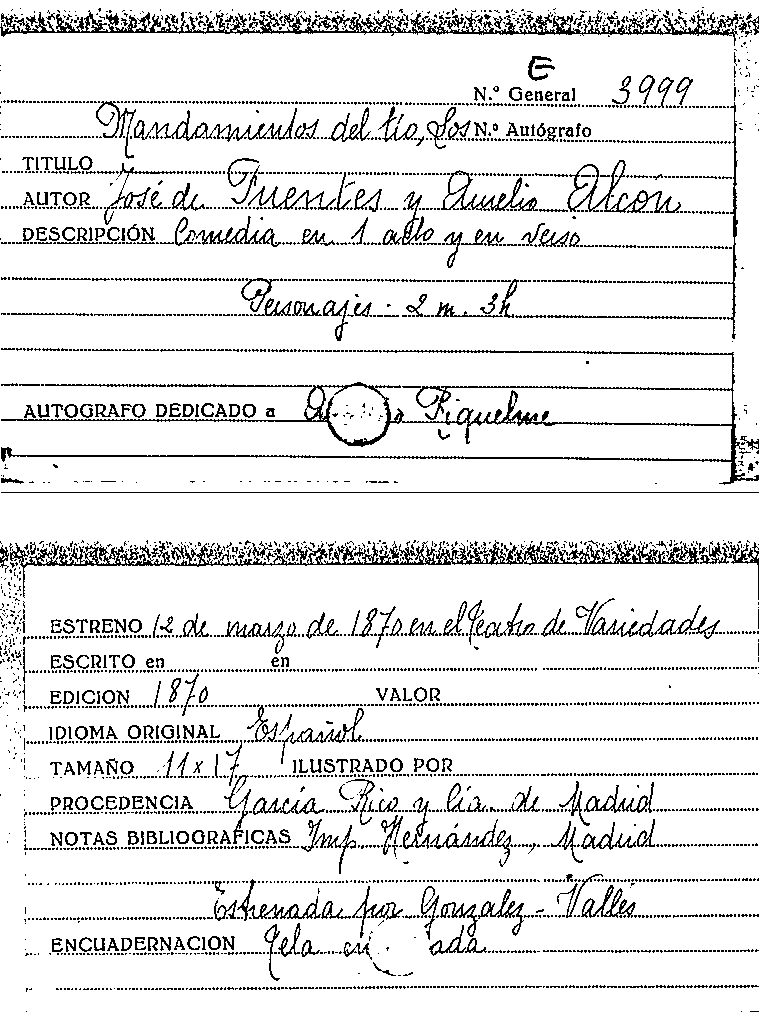 E
N.º General 3999
Mandamientos del tío, Los N.º Autógrafo
TITULO
AUTOR José de Fuentes y Aurelio Alcón
DESCRIPCIÓN Comedia en 1 acto y en verso
Personajes - 2 m. 3h
AUTOGRAFO DEDICADO a Riquelme
ESTRENO 12 de marzo de 1870 en el Teatro de Variedades
ESCRITO en en
EDICION 1870 VALOR
IDIOMA ORIGINAL Español
TAMAÑO 11 x 17 ILUSTRADO POR
PROCEDENCIA García Rico y Cía. de Madrid
NOTAS BIBLIOGRAFICAS Imp. Hernández, Madrid
Estrenada por Gonzalez - Vallés
ENCUADERNACION Tela